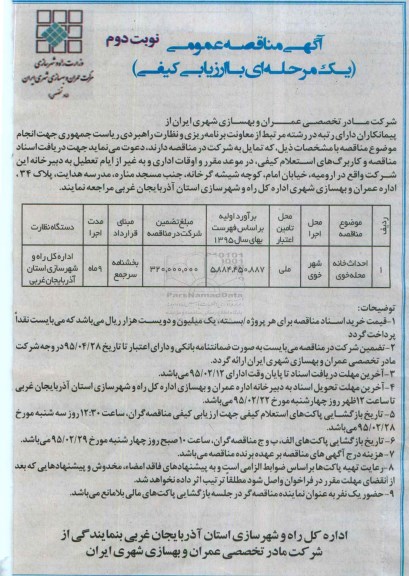 وزارت راه و شهرسازی
شرکت عمران و بهسازی شهری ایران
مادر تخصصی
نوبت دوم
آگهی مناقصه عمومی
(یک مرحله‌ای با ارزیابی کیفی)
شرکت مادر تخصصی عمران و بهسازی شهری ایران از
پیمانکاران دارای رتبه در رشته مرتبط از معاونت برنامه‌ریزی و نظارت راهبردی ریاست جمهوری جهت انجام
موضوع مناقصه با مشخصات ذیل، که تمایل به شرکت در مناقصه دارند، دعوت می‌نماید جهت دریافت اسناد
مناقصه و کاربرگ‌های استعلام کیفی، در موعد مقرر و اوقات اداری و به غیر از ایام تعطیل به دبیرخانه این
شرکت واقع در ارومیه، خیابان امام، کوچه شیشه گرخانه، جنب مسجد مناره، مدرسه هدایت، پلاک ۳۴،
اداره عمران و بهسازی شهری اداره کل راه و شهرسازی استان آذربایجان غربی مراجعه نمایند.
ردیف | موضوع مناقصه | محل اجرا | محل تامین اعتبار | برآورد اولیه بر اساس فهرست بهای سال ۱۳۹۵ | مبلغ تضمین شرکت در مناقصه | مبنای قرارداد | مدت اجرا | دستگاه نظارت
۱ | احداث خانه محله خوی | شهر خوی | ملی | ۵،۸۸۴،۴۵۰،۸۸۷ | ۳۲۰،۰۰۰،۰۰۰ | بخشنامه سرجمع | ۹ ماه | اداره کل راه و شهرسازی استان آذربایجان غربی
توضیحات:
۱-قیمت خرید اسناد مناقصه برای هر پروژه /بسته، یک میلیون و دویست هزار ریال می‌باشد که می‌بایست نقداً
پرداخت گردد
۲-تضمین شرکت در مناقصه می‌بایست به صورت ضمانتنامه بانکی و دارای اعتبار تا تاریخ ۹۵/۰۴/۲۸ در وجه شرکت
مادر تخصصی عمران و بهسازی شهری ایران ارائه گردد.
۳-آخرین مهلت دریافت اسناد تا پایان وقت اداری ۹۵/۰۲/۱۲ می‌باشد.
۴-آخرین مهلت تحویل اسناد به دبیرخانه اداره عمران و بهسازی اداره کل راه و شهرسازی استان آذربایجان غربی
تا ساعت ۱۲ظهر روز چهارشنبه مورخ ۹۵/۰۲/۲۲ می‌باشد.
۵-تاریخ بازگشایی پاکت‌های استعلام کیفی جهت ارزیابی کیفی مناقصه گران، ساعت ۱۲:۳۰ روز سه شنبه مورخ
۹۵/۰۲/۲۸ می‌باشد.
۶-تاریخ بازگشایی پاکت‌های الف، ب و ج مناقصه گران، ساعت ۱۰صبح روز چهارشنبه مورخ ۹۵/۰۲/۲۹ می‌باشد.
۷-هزینه درج آگهی های مناقصه بر عهده برنده مناقصه می‌باشد.
۸-رعایت تهیه پاکت‌ها بر اساس ضوابط الزامی است و به پیشنهادهای فاقد امضاء، مخدوش و پیشنهادهایی که بعد
از انقضای مهلت مقرر در فراخوان واصل شود مطلقا ترتیب اثر داده نخواهد شد.
۹-حضور یک نفر به عنوان نماینده مناقصه گر در جلسه بازگشایی پاکت‌های مالی بلامانع می‌باشد.
اداره کل راه و شهرسازی استان آذربایجان غربی بنمایندگی از
شرکت مادر تخصصی عمران و بهسازی شهری ایران